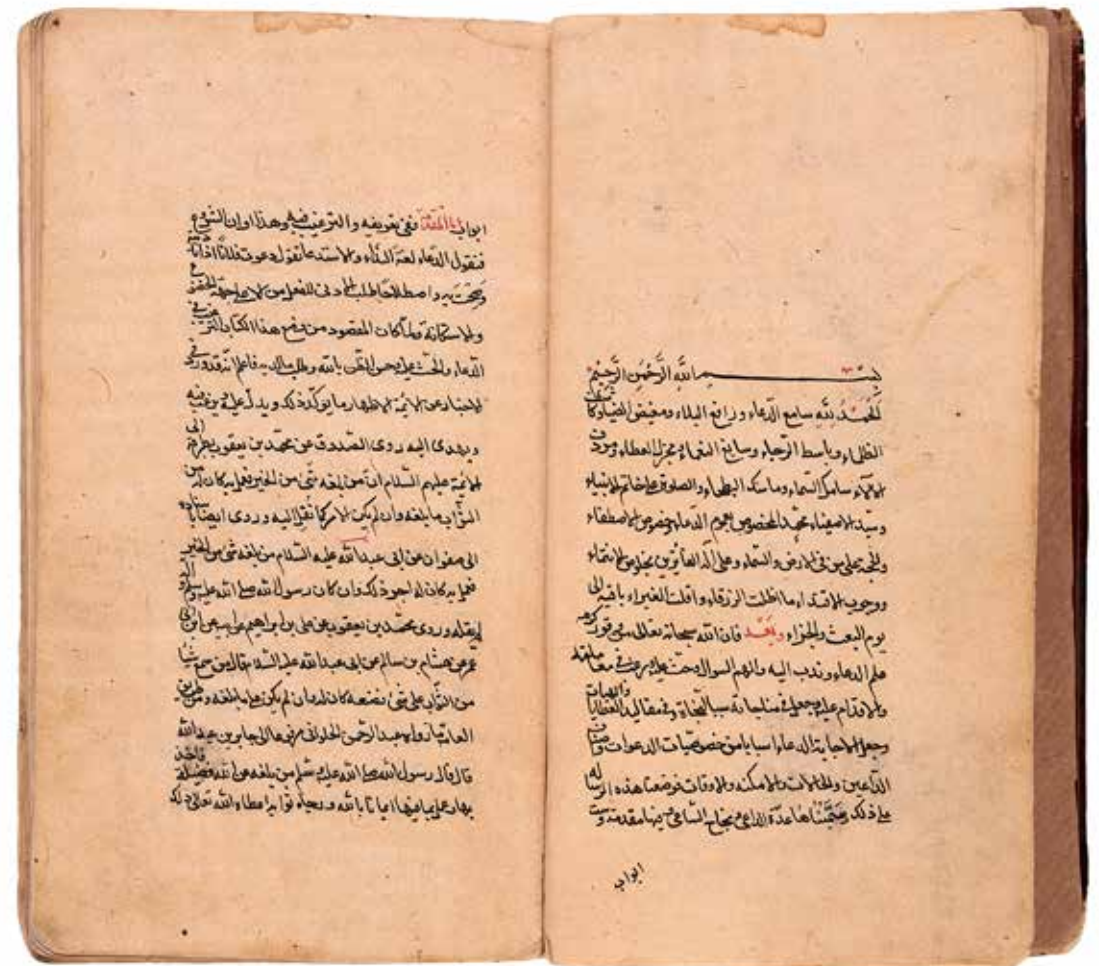 بسم الله الرحمن الرحيم
الحمد لله سامع الدعاء ودافع البلاء ومفيض الضياء وكاشف
الظلماء وباسط الرجاء وسابغ النعماء ومجزل العطاء ومردف
الالاء سامك السماء وماسك البطحاء والصلوة على خاتم الانبياء
وسيد الاصفياء محمد المخصوص بعموم الدعاء وخصوص الاصطفاء
والحجة على من في الارض والسماء وعلى آله الفائزين بخلوص الانتماء
ووجوب الاقتداء ما اظلت الزرقاء واقلت الغبراء باقية الى
يوم البعث والجزاء وبعد فان الله سبحانه تعالى من وفور كرمه
علم الدعاء وندب اليه والهم السوال وحث عليه ورغب في معاملته
والاقدام عليه وجعل في مناجاته سبب النجاة وفي مقاليد العطايا والهبات
وجعل لاجابة الدعاء اسبابا من خصوصيات الدعوات واصناف
الداعين والحالات والامكنه والاوقات فوضعنا هذه الرسالة
على ذلك وسميناها عدة الداعي ونجاح الساعي وفيها مقدمة وستة
ابواب
ابواب اما المقدمة ففي تعريفه والترغيب فيه وهذا اوان الشروع
فنقول الدعاء لغة النداء والاستدعاء تقول دعوت فلانا اذا ناديته
وصحت به واصطلاحا طلب الادنى للفعل من الاعلى على جهة الخضوع
والاستكانة ولما كان المقصود من وضع هذا الكتاب الترغيب في
الدعاء والحث عليه وحسن الظن بالله وطلب ما لديه فاعلم انه قد ورد في
الاخبار عن الائمة الاطهار ما يؤكد ذلك ويدل عليه ويرغب فيه
ويهدي اليه روى الصدوق عن محمد بن يعقوب بطرقه الى
الائمة عليهم السلام ان من بلغه شئ من الخير فعمل به كان له من
الثواب ما بلغه وان لم يكن الامر كما نقل اليه وروى ايضا باسناده
الى صفوان عن ابي عبد الله عليه السلام من بلغه شئ من الخير
فعمل به كان له اجر ذلك وان كان رسول الله صلى الله عليه وآله وسلم
لم يقله وروى محمد بن يعقوب عن علي بن ابراهيم عن ابيه عن ابن ابي
عمير عن هشام بن سالم عن ابي عبد الله عليه السلام قال من سمع شيئا
من الثواب على شئ فصنعه كان له وان لم يكن على ما بلغه ومن طريق
العامة ما رواه عبد الرحمن الحلواني مرفوعا الى جابر بن عبد الله
قال قال رسول الله صلى الله عليه وسلم من بلغه عن الله فضيلة فاخذ
بها وعمل بما فيها ايمانا بالله ورجاء ثوابه اعطاه الله تعالى ذلك